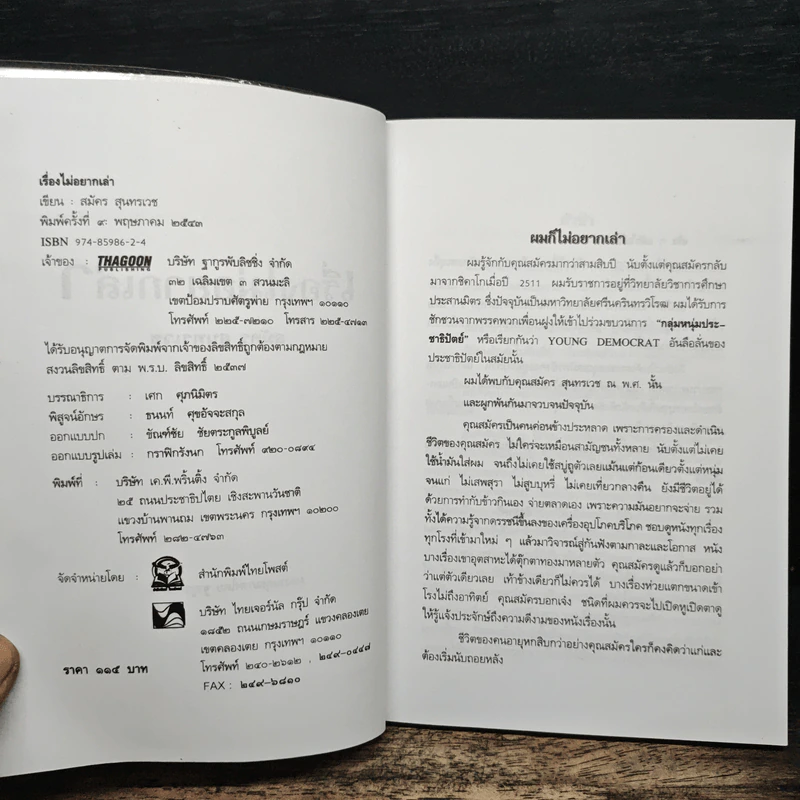 เรื่องไม่อยากเล่า
เขียน : สมัคร สุนทรเวช
พิมพ์ครั้งที่ ๙: พฤษภาคม ๒๕๔๓
ISBN 974-85986-2-4
เจ้าของ : THAGOON PUBLISHING บริษัท ฐากูรพับลิชชิ่ง จำกัด
๓๒ เฉลิมเขต ๓ สวนมะลิ
เขตป้อมปราบศัตรูพ่าย กรุงเทพฯ ๑๐๑๑๐
โทรศัพท์ ๒๒๕-๗๒๑๐ โทรสาร ๒๒๕-๔๗๑๓
ได้รับอนุญาตการจัดพิมพ์จากเจ้าของลิขสิทธิ์ถูกต้องตามกฎหมาย
สงวนลิขสิทธิ์ ตาม พ.ร.บ. ลิขสิทธิ์ ๒๕๓๗
บรรณาธิการ : เศก ศุภนิมิตร
พิสูจน์อักษร : ธนนท์ ศุขอัจจะสกุล
ออกแบบปก : ชัณฑ์ชัย ชัยตระกูลพิบูลย์
ออกแบบรูปเล่ม : กราฟิกรังนก โทรศัพท์ ๙๒๐-๐๘๙๔
พิมพ์ที่ : บริษัท เค.พี.พริ้นติ้ง จำกัด
๒๕ ถนนประชาธิปไตย เชิงสะพานวันชาติ
แขวงบ้านพานถม เขตพระนคร กรุงเทพฯ ๑๐๒๐๐
โทรศัพท์ ๒๘๒-๔๗๖๓
จัดจำหน่ายโดย : สำนักพิมพ์ไทยโพสต์
บริษัท ไทยเจอร์นัล กรุ๊ป จำกัด
๑๘๕๒ ถนนเกษมราษฎร์ แขวงคลองเตย
เขตคลองเตย กรุงเทพฯ ๑๐๑๑๐
ราคา ๑๑๕ บาท โทรศัพท์ ๒๔๐-๒๖๑๒ , ๒๔๙-๐๔๔๗
FAX : ๒๔๙-๖๘๑๐
ผมก็ไม่อยากเล่า
ผมรู้จักกับคุณสมัครมากว่าสามสิบปี นับตั้งแต่คุณสมัครกลับ
มาจากชิคาโกเมื่อปี 2511 ผมรับราชการอยู่ที่วิทยาลัยวิชาการศึกษา
ประสานมิตร ซึ่งปัจจุบันเป็นมหาวิทยาลัยศรีนครินทรวิโรฒ ผมได้รับการ
ชักชวนจากพรรคพวกเพื่อนฝูงให้เข้าไปร่วมขบวนการ “กลุ่มหนุ่มประ-
ชาธิปัตย์” หรือเรียกกันว่า YOUNG DEMOCRAT อันลือลั่นของ
ประชาธิปัตย์ในสมัยนั้น
ผมได้พบกับคุณสมัคร สุนทรเวช ณ พ.ศ. นั้น
และผูกพันกันมาจวบจนปัจจุบัน
คุณสมัครเป็นคนค่อนข้างประหลาด เพราะการครองและดำเนิน
ชีวิตของคุณสมัคร ไม่ใคร่จะเหมือนสามัญชนทั้งหลาย นับตั้งแต่ไม่เคย
ใช้น้ำมันใส่ผม จนถึงไม่เคยใช้สบู่ถูตัวเลยแม้แต่ก้อนเดียวตั้งแต่หนุ่ม
จนแก่ ไม่เสพสุรา ไม่สูบบุหรี่ ไม่เคยเที่ยวกลางคืน ยังมีชีวิตอยู่ได้
ด้วยการทำกับข้าวกินเอง จ่ายตลาดเอง เพราะความมันอยากจะจ่าย รวม
ทั้งได้ความรู้จากดรรชนีขึ้นลงของเครื่องอุปโภคบริโภค ชอบดูหนังทุกเรื่อง
ทุกโรงที่เข้ามาใหม่ ๆ แล้วมาวิจารณ์สู่กันฟังตามกาละและโอกาส หนัง
บางเรื่องเขาอุตสาหะได้ตุ๊กตาทองมาหลายตัว คุณสมัครดูแล้วก็บอกอย่า
ว่าแต่ตัวเดียวเลย เท้าข้างเดียวก็ไม่ควรได้ บางเรื่องห่วยแตกขนาดเข้า
โรงไม่ถึงอาทิตย์ คุณสมัครบอกเจ๋ง ชนิดที่ผมควรจะไปเปิดหูเปิดตาดู
ให้รู้แจ้งประจักษ์ถึงความดีงามของหนังเรื่องนั้น
ชีวิตของคนอายุหกสิบกว่าอย่างคุณสมัครใครก็คงคิดว่าแก่และ
ต้องเริ่มนับถอยหลัง